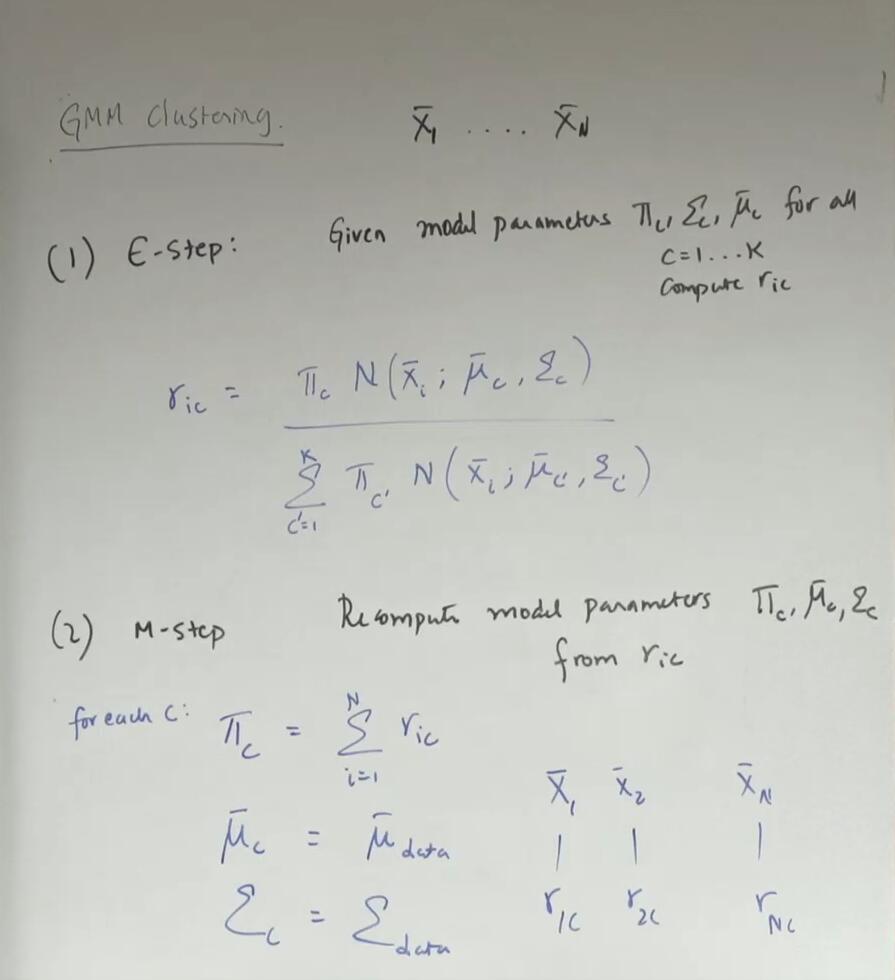 GMM Clustering. x̄₁ .... x̄_N
(1) E-Step: Given model parameters π_c, Σ_c, μ̄_c for all
c=1...K
Compute r_ic
r_ic = π_c N(x̄_i; μ̄_c, Σ_c)
K
Σ π_c' N(x̄_i; μ̄_c, Σ_c)
c'=1
(2) M-step Recompute model parameters π_c, μ̄_c, Σ_c
from r_ic
for each c: π_c = Σ r_ic
N
i=1
x̄₁ x̄₂ x̄_N
μ̄_c = μ̄_data | | |
Σ_c = Σ_data r_1c r_2c r_Nc